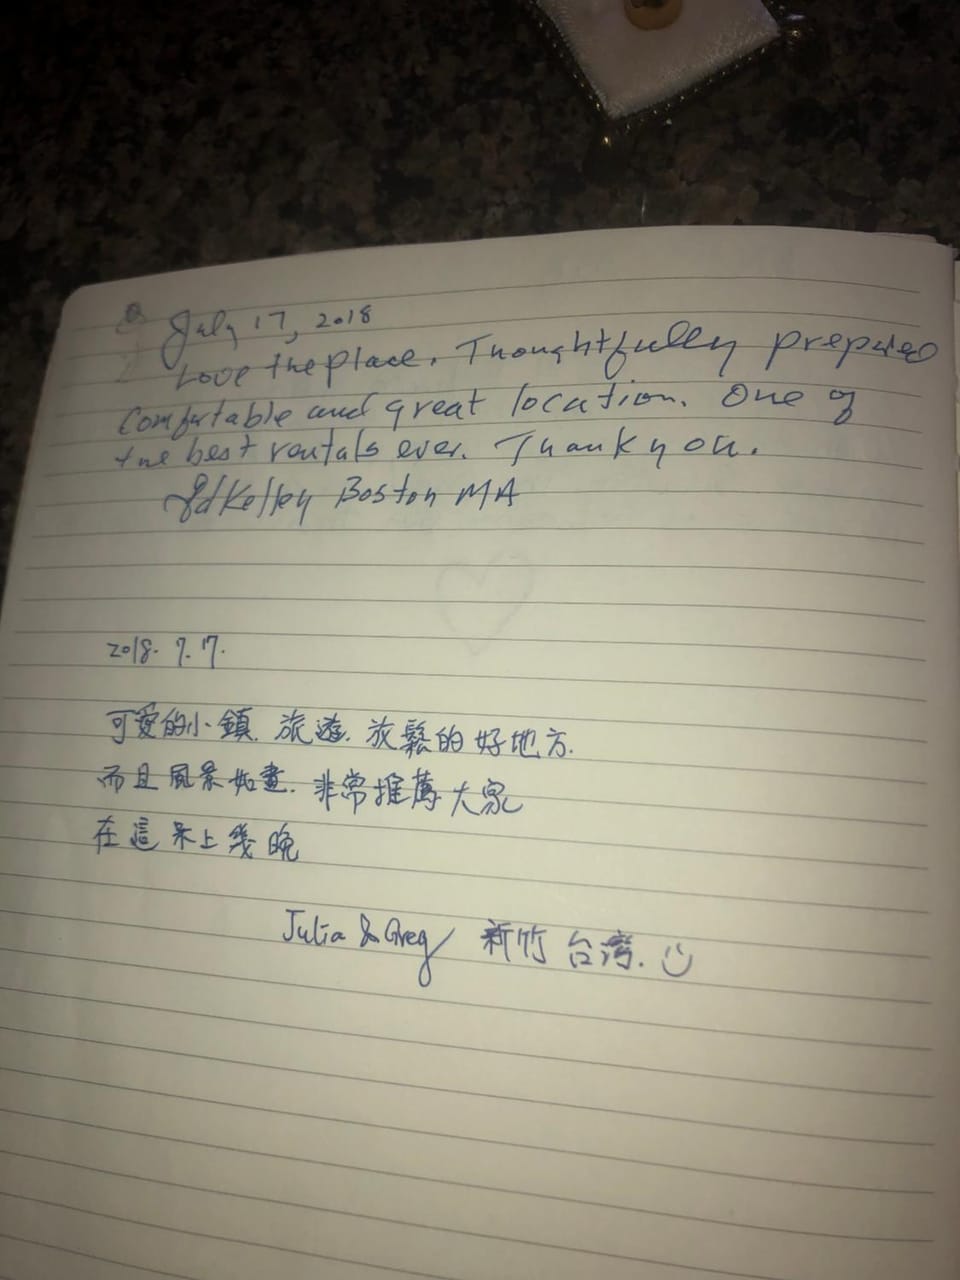 July 17, 2018
Love the place. Thoughtfully prepared
Comfortable and great location. One of
the best rentals ever. Thank you.
Ed Kelley Boston MA
2018. 7. 17.
可愛的小鎮. 旅遊. 放鬆的好地方.
而且風景如畫. 非常推薦大家
在這呆上幾晚
Julia & Greg 新竹 台灣. :)